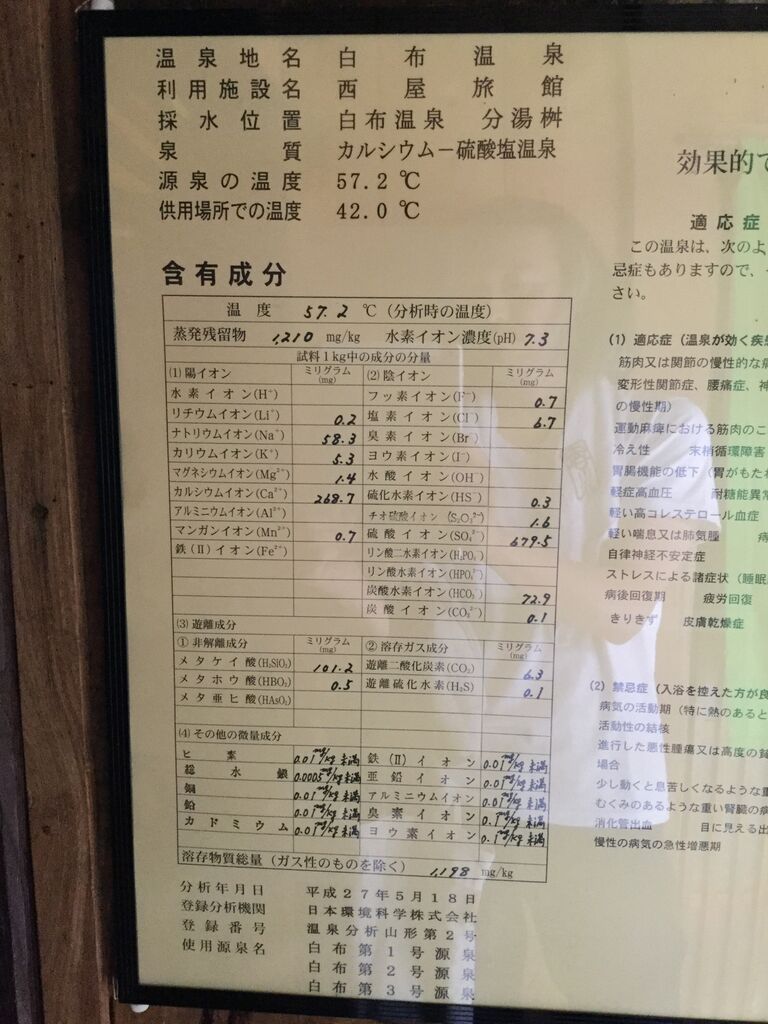 温泉地名 白布温泉
利用施設名 西屋旅館
採水位置 白布温泉 分湯桝
泉質 カルシウム－硫酸塩温泉
源泉の温度 57.2 ℃
供用場所での温度 42.0 ℃
含有成分
温度 57.2 ℃ (分析時の温度)
蒸発残留物 1,210 mg/kg 水素イオン濃度(pH) 7.3
試料1kg中の成分の分量
(1) 陽イオン ミリグラム(mg) (2) 陰イオン ミリグラム(mg)
水素イオン(H⁺) フッ素イオン(F⁻) 0.7
リチウムイオン(Li⁺) 0.2 塩素イオン(Cl⁻) 6.7
ナトリウムイオン(Na⁺) 58.3 臭素イオン(Br⁻)
カリウムイオン(K⁺) 5.3 ヨウ素イオン(I⁻)
マグネシウムイオン(Mg²⁺) 1.4 水酸イオン(OH⁻)
カルシウムイオン(Ca²⁺) 268.7 硫化水素イオン(HS⁻) 0.3
アルミニウムイオン(Al³⁺) チオ硫酸イオン(S₂O₃²⁻) 1.6
マンガンイオン(Mn²⁺) 0.7 硫酸イオン(SO₄²⁻) 679.5
鉄(II)イオン(Fe²⁺) リン酸二水素イオン(H₂PO₄⁻)
リン酸水素イオン(HPO₄²⁻)
炭酸水素イオン(HCO₃⁻) 72.9
炭酸イオン(CO₃²⁻) 0.1
(3) 遊離成分
① 非解離成分 ミリグラム(mg) ② 溶存ガス成分 ミリグラム(mg)
メタケイ酸(H₂SiO₃) 101.2 遊離二酸化炭素(CO₂) 6.3
メタホウ酸(HBO₂) 0.5 遊離硫化水素(H₂S) 0.1
メタ亜ヒ酸(HAsO₂)
(4) その他の微量成分
ヒ素 0.01mg/kg 未満 鉄(II)イオン 0.01mg/kg 未満
総水銀 0.0005mg/kg 未満 亜鉛イオン 0.01mg/kg 未満
銅 0.01mg/kg 未満 アルミニウムイオン 0.01mg/kg 未満
鉛 0.01mg/kg 未満 臭素イオン 0.1mg/kg 未満
カドミウム 0.01mg/kg 未満 ヨウ素イオン 0.1mg/kg 未満
溶存物質総量 (ガス性のものを除く) 1,198 mg/kg
分析年月日 平成27年5月18日
登録分析機関 日本環境科学株式会社
登録番号 温泉分析山形第2号
使用源泉名 白布第1号源泉
白布第2号源泉
白布第3号源泉
効果的で
適応症
この温泉は、次のよ
忌症もありますので、
さい。
(1) 適応症 (温泉が効く疾患
筋肉又は関節の慢性的な
変形性関節症、腰痛症、神
の慢性期)
運動麻痺における筋肉のこ
冷え性 末梢循環障害
胃腸機能の低下 (胃がもた
軽症高血圧 耐糖能異常
軽い高コレステロール血症
軽い喘息又は肺気腫
自律神経不安定症
ストレスによる諸症状 (睡眠
病後回復期 疲労回復
きりきず 皮膚乾燥症
(2) 禁忌症 (入浴を控えた方が良
病気の活動期 (特に熱のあると
活動性の結核
進行した悪性腫瘍又は高度の貧
場合
少し動くと息苦しくなるような重
むくみのあるような重い腎臓の病
消化管出血 目に見える出
慢性の病気の急性増悪期